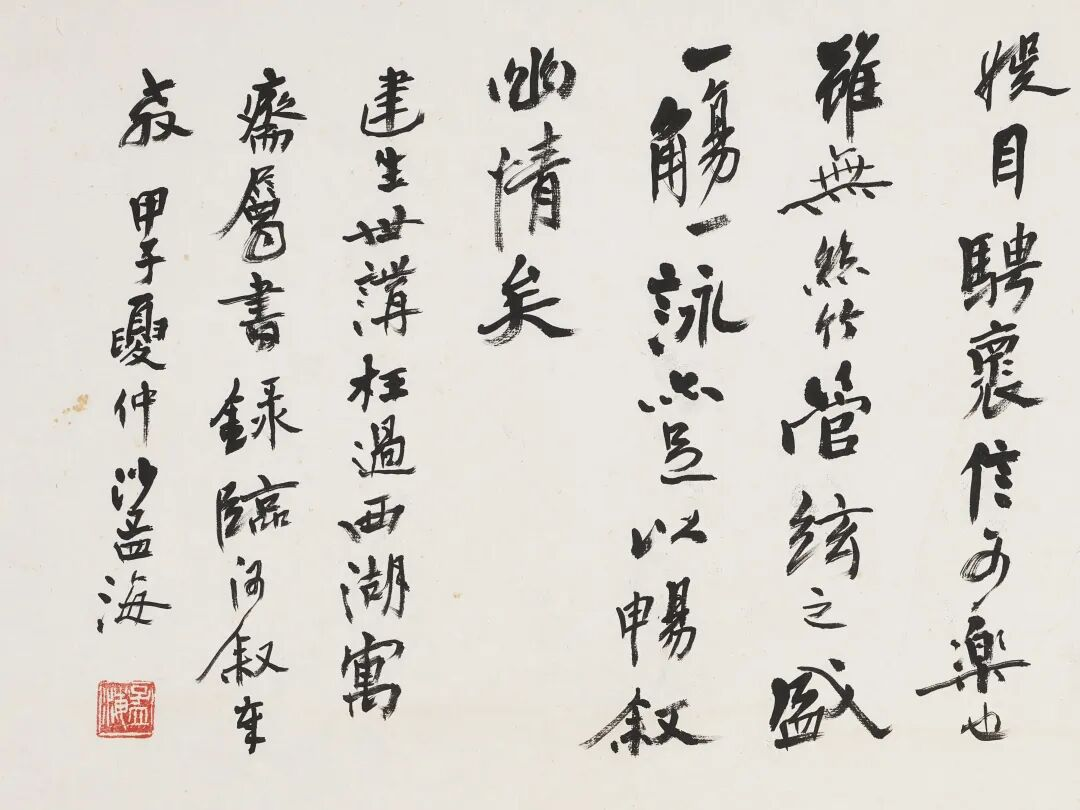 娛目騁褱信可樂也
雖無絲竹管絃之盛
一觴一詠亦足以暢叙
幽情矣
建生世講枉過西湖寓
齋屬書錄臨河叙奉
教 甲子夏仲沙孟海
孟海